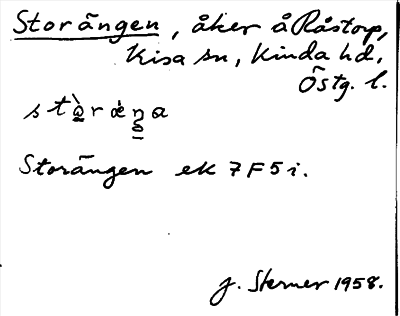 Storängen, åker å Råstorp,
Kisa sn, Kinda hd,
Östg. l.
Storängen ek 7F5i.
J. Sterner 1958.